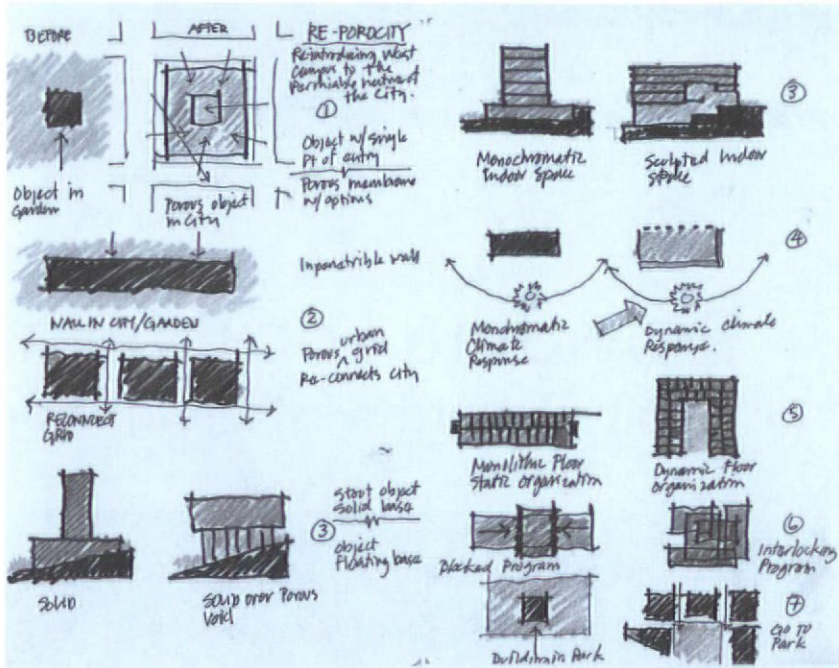 BEFORE
AFTER
RE-POROCITY
Re-introducing West
Campus to the
Permiable nature of
the City.
①
Object w/ single
Pt of entry
Porous membrane
w/ options
Object in
Garden
Porous object
in City
Inpenetrible wall
WALL IN CITY/GARDEN
②
urban
Porous ^ grid
Re-connects city
RECONNECT
GRID
Stout object
Solid base
③
Object
Floating base
SOLID
SOLID over Porous
Void
③
Monochromatic
Indoor Space
Sculpted Indoor
Space
④
Monochromatic
Climate
Response
Dynamic climate
Response.
⑤
Monolithic Floor
Static organization
Dynamic Floor
Organization
⑥
Blocked Program
Interlocking
Program
⑦
Go to
Park
Building in Park